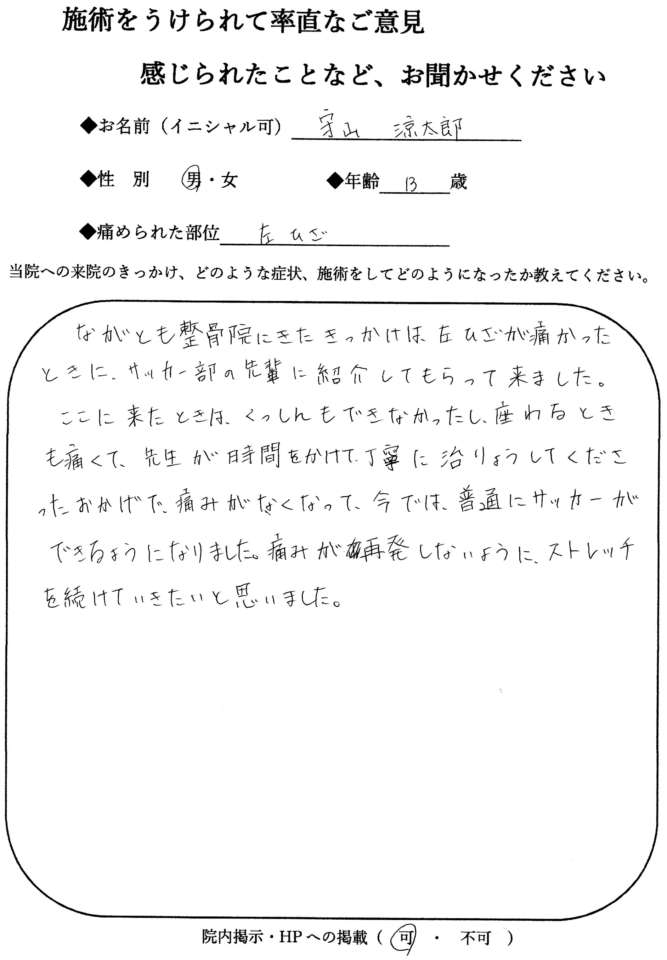 施術をうけられて率直なご意見
感じられたことなど、お聞かせください
◆お名前（イニシャル可） 守山 涼太郎
◆性 別 男・女 ◆年齢 13 歳
◆痛められた部位 左ひざ
当院への来院のきっかけ、どのような症状、施術をしてどのようになったか教えてください。
ながとも整骨院にきたきっかけは、左ひざが痛かった
ときに、サッカー部の先輩に紹介してもらって来ました。
ここに来たときは、くっしんもできなかったし、座わるとき
も痛くて、先生が時間をかけて、丁寧に治りょうしてくださ
ったおかげで、痛みがなくなって、今では、普通にサッカーが
できるようになりました。痛みが再発しないように、ストレッチ
を続けていきたいと思いました。
院内掲示・HPへの掲載（ 可 ・ 不可 ）